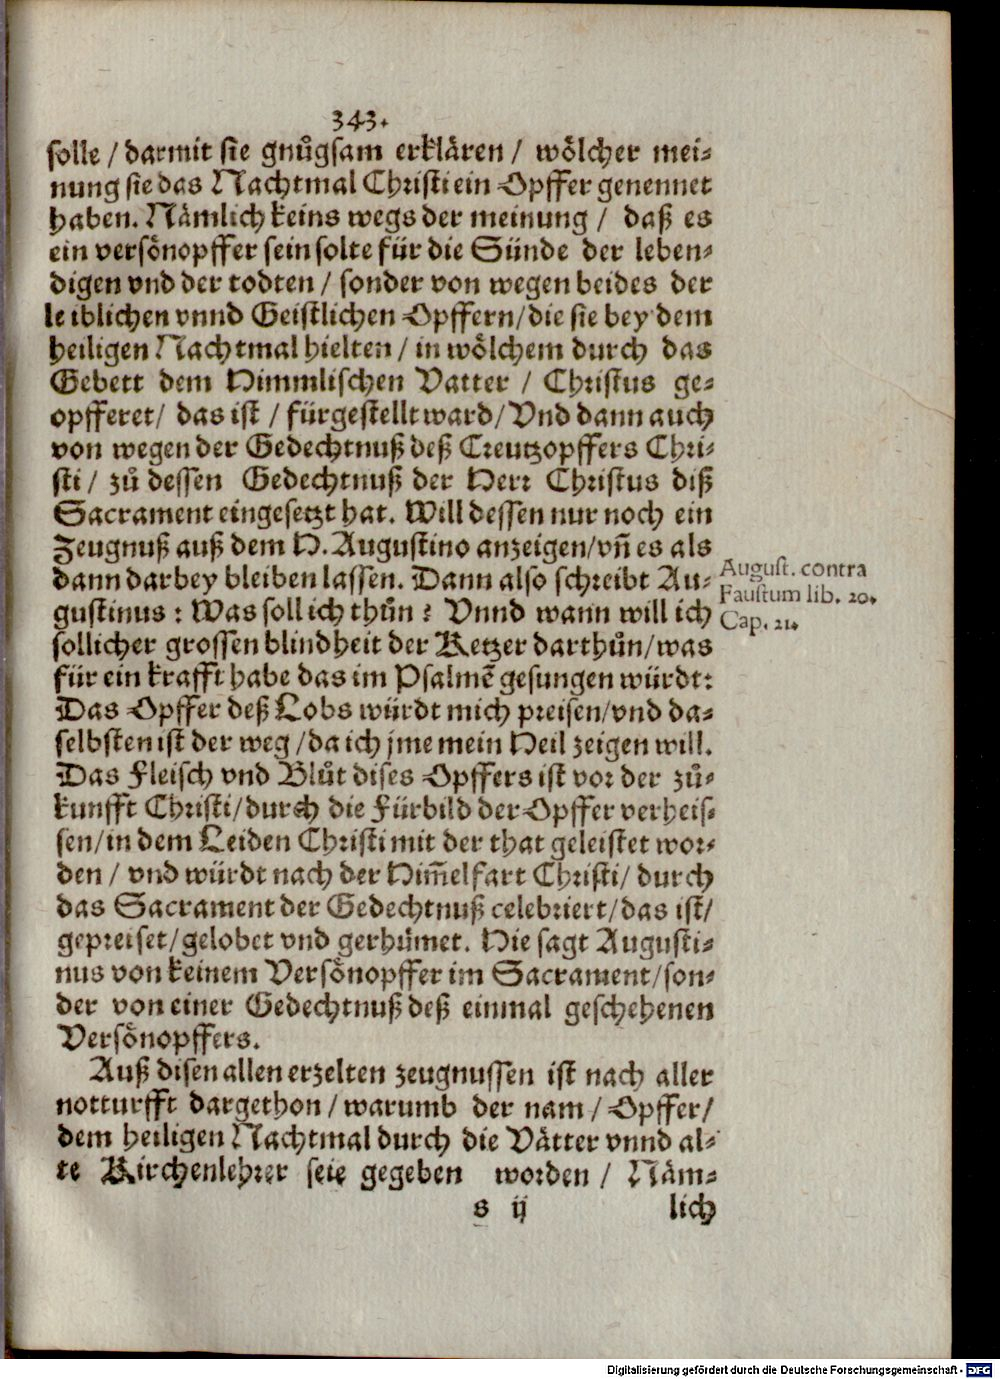 343.
solle / darmit sie gnůgsam erklären / wölcher mei-
nung sie das Nachtmal Christi ein Opffer genennet
haben. Nämlich keins wegs der meinung / daß es
ein versönopffer sein solte für die Sünde der leben-
digen vnd der todten / sonder von wegen beides der
leiblichen vnnd Geistlichen Opffern/die sie bey dem
heiligen Nachtmal hielten / in wölchem durch das
Gebett dem Himmlischen Vatter / Christus ge-
opfferet/ das ist / fürgestellt ward/Vnd dann auch
von wegen der Gedechtnuß deß Creutzopffers Chri-
sti / zů dessen Gedechtnuß der Herr Christus diß
Sacrament eingesetzt hat. Will dessen nur noch ein
Zeugnuß auß dem H. Augustino anzeigen/vn̄ es als
dann darbey bleiben lassen. Dann also schreibt Au-
gustinus : Was soll ich thůn ? Vnnd wann will ich
sollicher grossen blindheit der Ketzer darthůn/was
für ein krafft habe das im Psalmē gesungen würdt:
Das Opffer deß Lobs würdt mich preisen/vnd da-
selbsten ist der weg /da ich jme mein Heil zeigen will.
Das Fleisch vnd Blůt dises Opffers ist vor der zů-
kunfft Christi/durch die Fürbild der Opffer verheis-
sen/in dem Leiden Christi mit der that geleistet wor-
den / vnd würdt nach der Him̄elfart Christi/ durch
das Sacrament der Gedechtnuß celebriert/das ist/
gepreiset/gelobet vnd gerhümet. Hie sagt Augusti-
nus von keinem Versönopffer im Sacrament/son-
der von einer Gedechtnuß deß einmal geschehenen
Versönopffers.
Auß disen allen erzelten zeugnussen ist nach aller
notturfft dargethon / warumb der nam / Opffer/
dem heiligen Nachtmal durch die Vätter vnnd al-
te Kirchenlehrer seie gegeben worden / Näm-
s ij lich
August. contra
Faustum lib. 20.
Cap. 21.
Digitalisierung gefördert durch die Deutsche Forschungsgemeinschaft - DFG